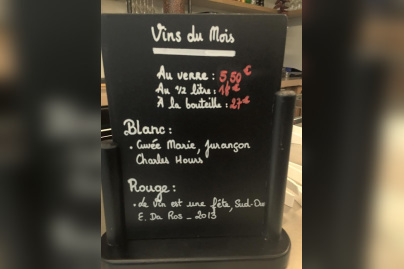 Vins du Mois
Au verre : 5,50€
Au 1/2 litre : 18€
À la bouteille : 27€
Blanc :
• Cuvée Marie, Jurançon
Charles Hours
Rouge :
• Le Vin est une fête, Sud-Ou
E. Da Ros _ 2013